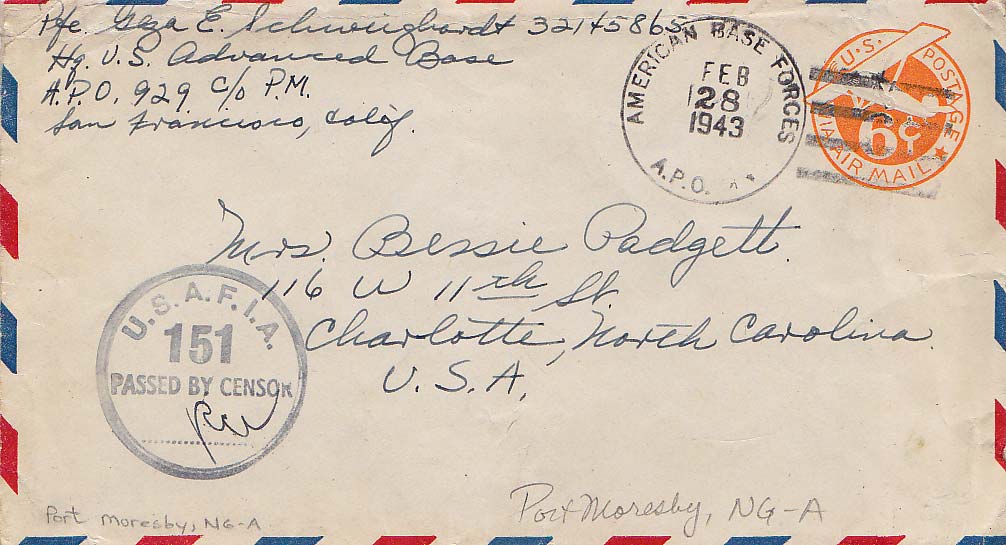 Pfc. Geza E. Schweighardt 32145865
Hq. U.S. Advanced Base
A.P.O. 929 c/o P.M.
San Francisco, Calif.
AMERICAN BASE FORCES
FEB
28
1943
A.P.O.
U.S. POSTAGE
6¢
VIA AIR MAIL
Mrs. Bessie Padgett
116 W 11th St.
Charlotte, North Carolina.
U.S.A.
U.S.A.F.I.A.
151
PASSED BY CENSOR
Port Moresby, NG-A
Port Moresby, NG-A